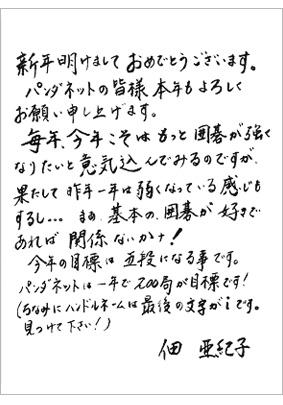 新年明けまして おめでとうございます。
パンダネットの皆様 本年もよろしく
お願い申し上げます。
毎年、今年こそは もっと 囲碁が強く
なりたいと意気込んでみるのですが、
果たして 昨年一年は弱くなっている感じも
するし… まあ、基本の、囲碁が 好きで
あれば 関係ないかナ!
今年の目標は 五段になる事です。
パンダネットは一年で200局が目標です!
(ちなみにハンドルネームは最後の文字がiです。
見つけて下さい!)
佃 亜紀子